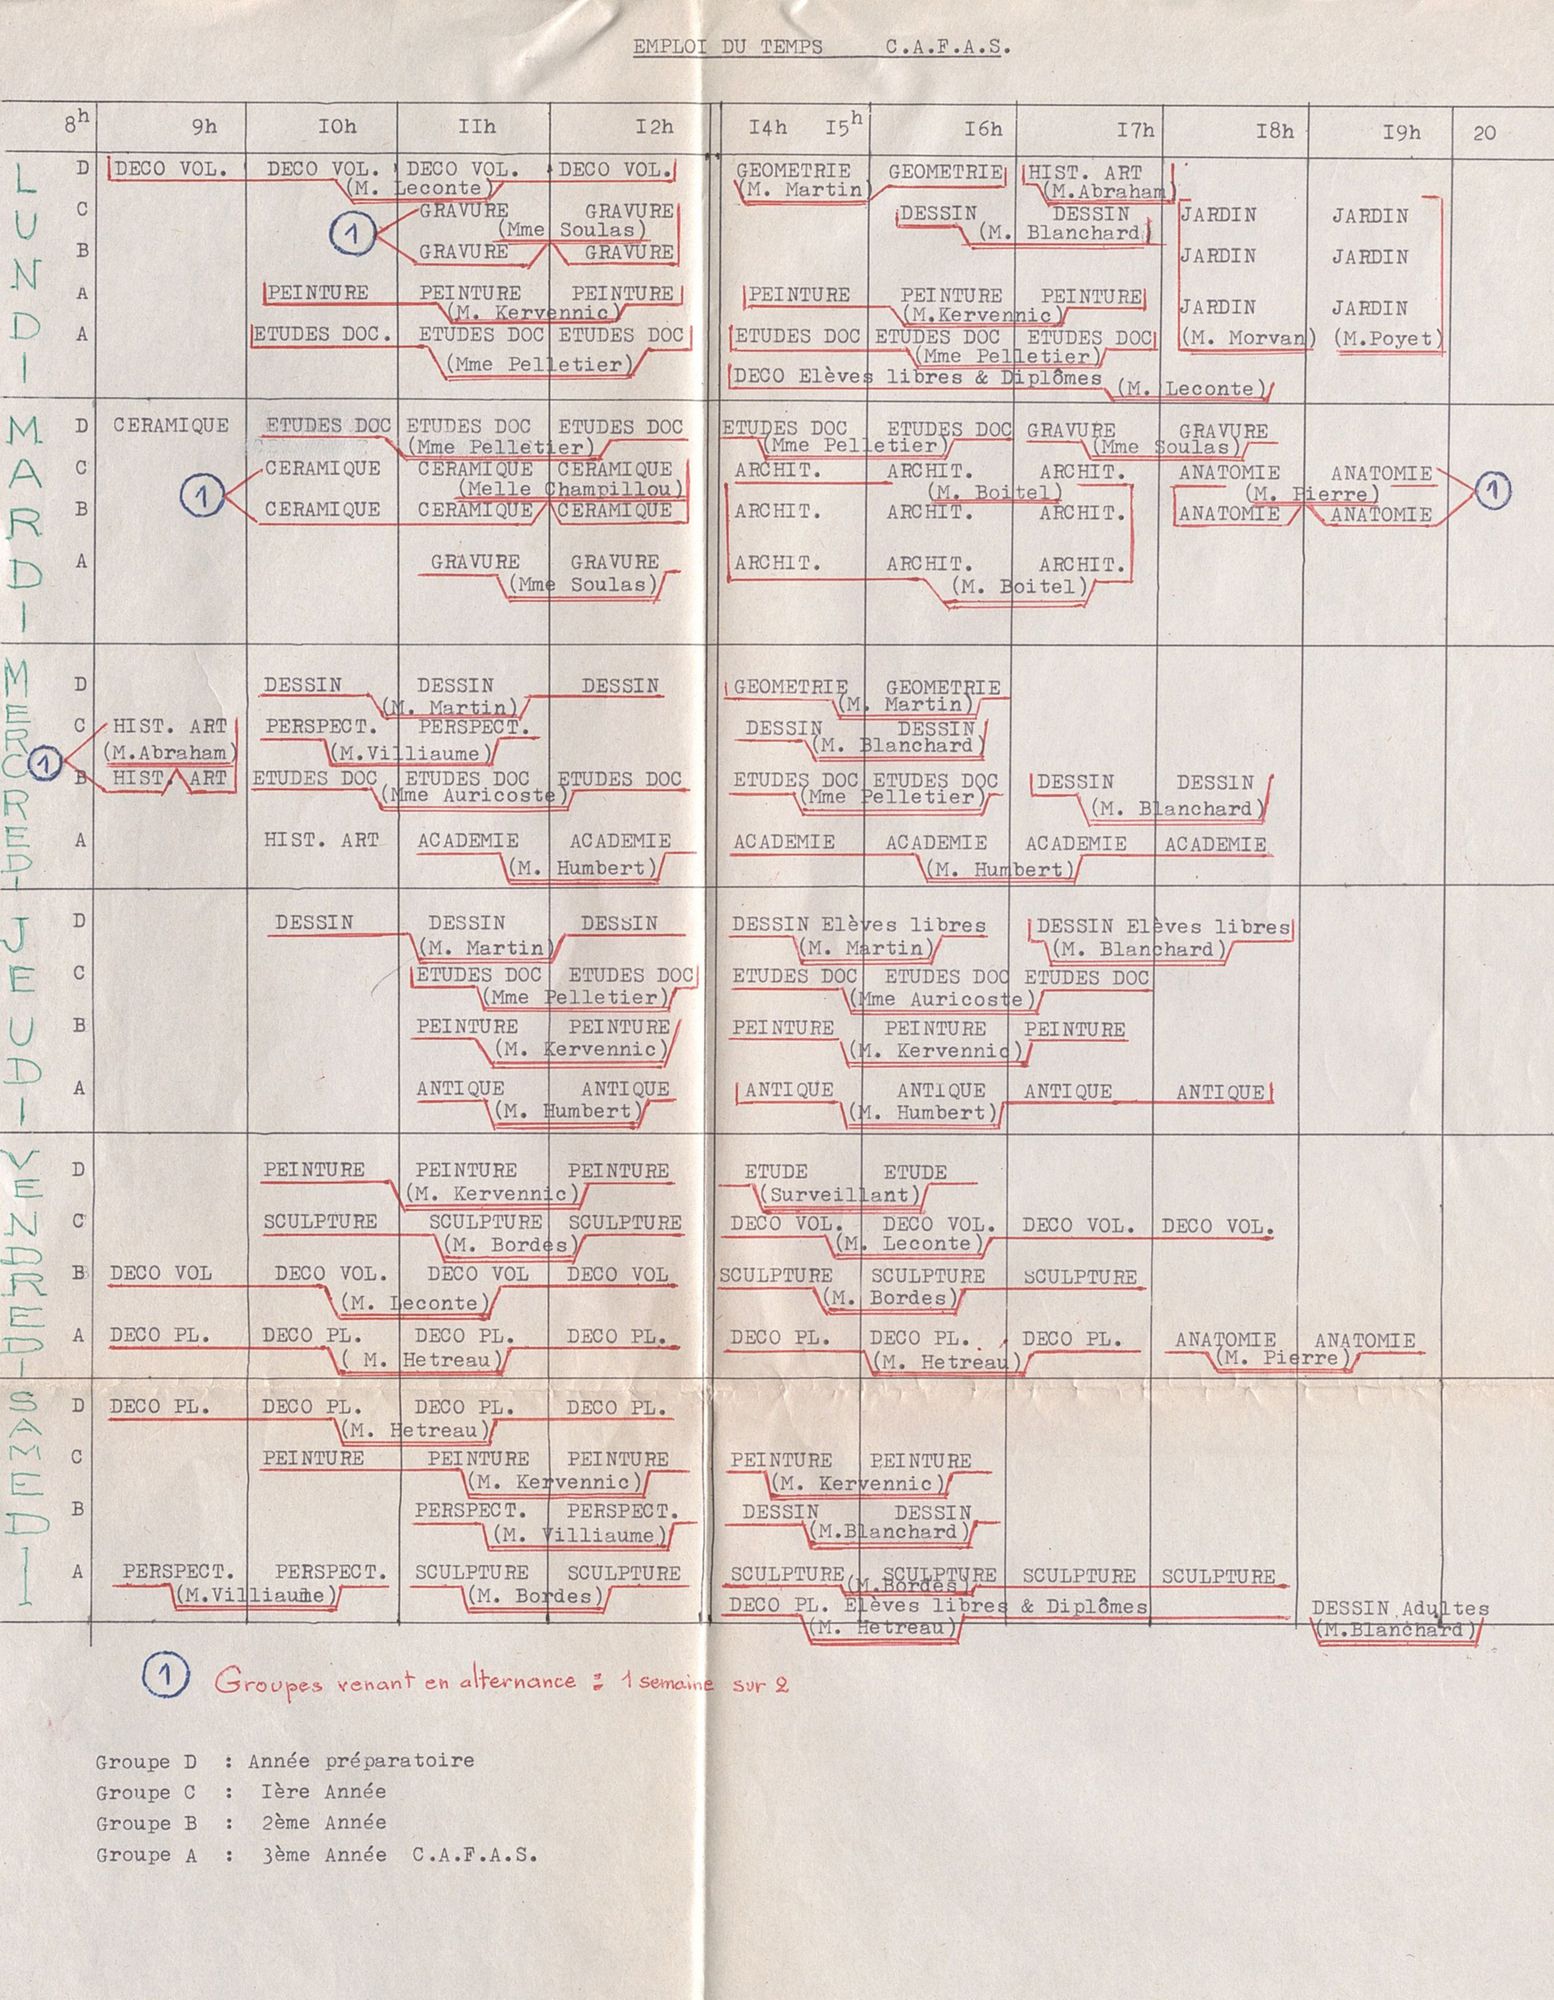 EMPLOI DU TEMPS C.A.F.A.S.
8h 9h I0h IIh I2h I4h I5h I6h I7h I8h I9h 20
LUNDI
D DECO VOL. DECO VOL. DECO VOL. DECO VOL. GEOMETRIE GEOMETRIE HIST. ART
(M. Leconte) (M. Martin) (M.Abraham)
C GRAVURE GRAVURE DESSIN DESSIN JARDIN JARDIN
1 (Mme Soulas) (M. Blanchard)
B GRAVURE GRAVURE JARDIN JARDIN
A PEINTURE PEINTURE PEINTURE PEINTURE PEINTURE PEINTURE JARDIN JARDIN
(M. Kervennic) (M.Kervennic)
A ETUDES DOC. ETUDES DOC ETUDES DOC ETUDES DOC ETUDES DOC ETUDES DOC (M. Morvan) (M.Poyet)
(Mme Pelletier) (Mme Pelletier)
DECO Elèves libres & Diplômes (M. Leconte)
MARDI
D CERAMIQUE ETUDES DOC ETUDES DOC ETUDES DOC ETUDES DOC ETUDES DOC GRAVURE GRAVURE
(Mme Pelletier) (Mme Pelletier) (Mme Soulas)
C CERAMIQUE CERAMIQUE CERAMIQUE ARCHIT. ARCHIT. ARCHIT. ANATOMIE ANATOMIE
1 (Melle Champillou) (M. Boitel) (M. Pierre) 1
B CERAMIQUE CERAMIQUE CERAMIQUE ARCHIT. ARCHIT. ARCHIT. ANATOMIE ANATOMIE
A GRAVURE GRAVURE ARCHIT. ARCHIT. ARCHIT.
(Mme Soulas) (M. Boitel)
MERCREDI
D DESSIN DESSIN DESSIN GEOMETRIE GEOMETRIE
(M. Martin) (M. Martin)
C HIST. ART PERSPECT. PERSPECT. DESSIN DESSIN
1 (M.Abraham) (M.Villiaume) (M. Blanchard)
B HIST. ART ETUDES DOC ETUDES DOC ETUDES DOC ETUDES DOC ETUDES DOC DESSIN DESSIN
(Mme Auricoste) (Mme Pelletier) (M. Blanchard)
A HIST. ART ACADEMIE ACADEMIE ACADEMIE ACADEMIE ACADEMIE ACADEMIE
(M. Humbert) (M. Humbert)
JEUDI
D DESSIN DESSIN DESSIN DESSIN Elèves libres DESSIN Elèves libres
(M. Martin) (M. Martin) (M. Blanchard)
C ETUDES DOC ETUDES DOC ETUDES DOC ETUDES DOC ETUDES DOC
(Mme Pelletier) (Mme Auricoste)
B PEINTURE PEINTURE PEINTURE PEINTURE PEINTURE
(M. Kervennic) (M. Kervennic)
A ANTIQUE ANTIQUE ANTIQUE ANTIQUE ANTIQUE ANTIQUE
(M. Humbert) (M. Humbert)
VENDREDI
D PEINTURE PEINTURE PEINTURE ETUDE ETUDE
(M. Kervennic) (Surveillant)
C SCULPTURE SCULPTURE SCULPTURE DECO VOL. DECO VOL. DECO VOL. DECO VOL.
(M. Bordes) (M. Leconte)
B DECO VOL DECO VOL. DECO VOL DECO VOL SCULPTURE SCULPTURE SCULPTURE
(M. Leconte) (M. Bordes)
A DECO PL. DECO PL. DECO PL. DECO PL. DECO PL. DECO PL. DECO PL. ANATOMIE ANATOMIE
( M. Hetreau) (M. Hetreau) (M. Pierre)
SAMEDI
D DECO PL. DECO PL. DECO PL. DECO PL.
(M. Hetreau)
C PEINTURE PEINTURE PEINTURE PEINTURE PEINTURE
(M. Kervennic) (M. Kervennic)
B PERSPECT. PERSPECT. DESSIN DESSIN
(M. Villiaume) (M.Blanchard)
A PERSPECT. PERSPECT. SCULPTURE SCULPTURE SCULPTURE SCULPTURE SCULPTURE SCULPTURE
(M.Villiaume) (M. Bordes) (M.Bordes)
DECO PL. Elèves libres & Diplômes DESSIN Adultes
(M. Hetreau) (M.Blanchard)
1 Groupes venant en alternance : 1 semaine sur 2
Groupe D : Année préparatoire
Groupe C : Ière Année
Groupe B : 2ème Année
Groupe A : 3ème Année C.A.F.A.S.